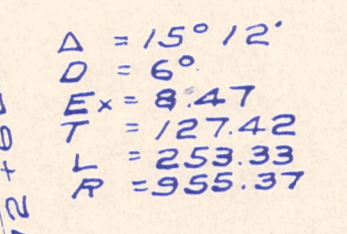 Δ = 15° 12'
D = 6°
Ex = 8.47
T = 127.42
L = 253.33
R = 955.37